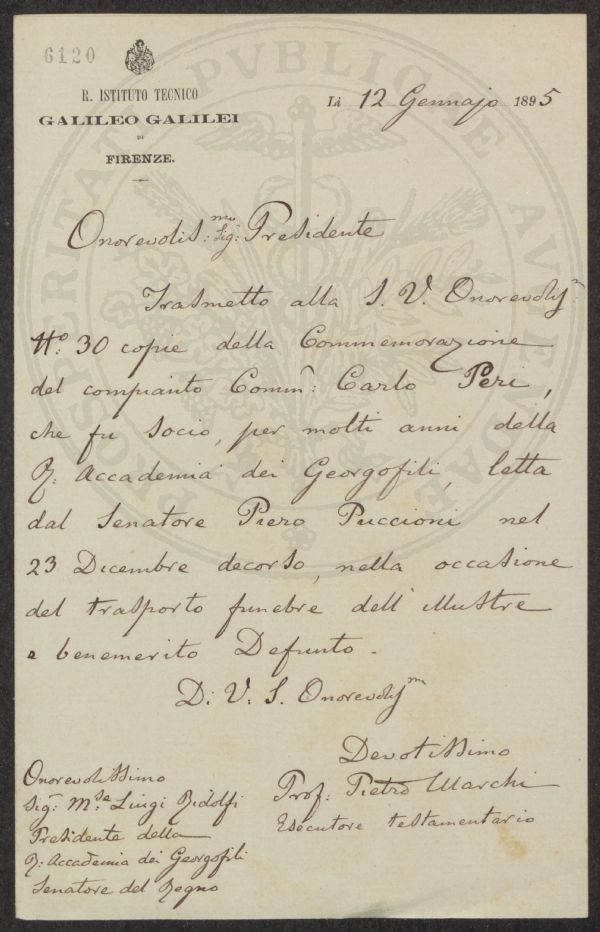 6120
R. ISTITUTO TECNICO
GALILEO GALILEI
DI
FIRENZE.
Lì 12 Gennajo 1895
Onorevolis:mo Sig: Presidente
Trasmetto alla S. V. Onorevolis:m
No: 30 copie della Commemorazione
del compianto Comm: Carlo Peri,
che fu Socio, per molti anni della
R: Accademia dei Georgofili, letta
dal Senatore Piero Puccioni nel
23 Dicembre decorso, nella occasione
del trasporto funebre dell'illustre
e benemerito Defunto.
D: V. S. Onorevolis:m
Devotissimo
Prof: Pietro Marchi
Esecutore testamentario
Onorevolissimo
Sig: M:se Luigi Ridolfi
Presidente della
R: Accademia dei Georgofili
Senatore del Regno
PROSPERITATI PVBLICAE AVGENDAE